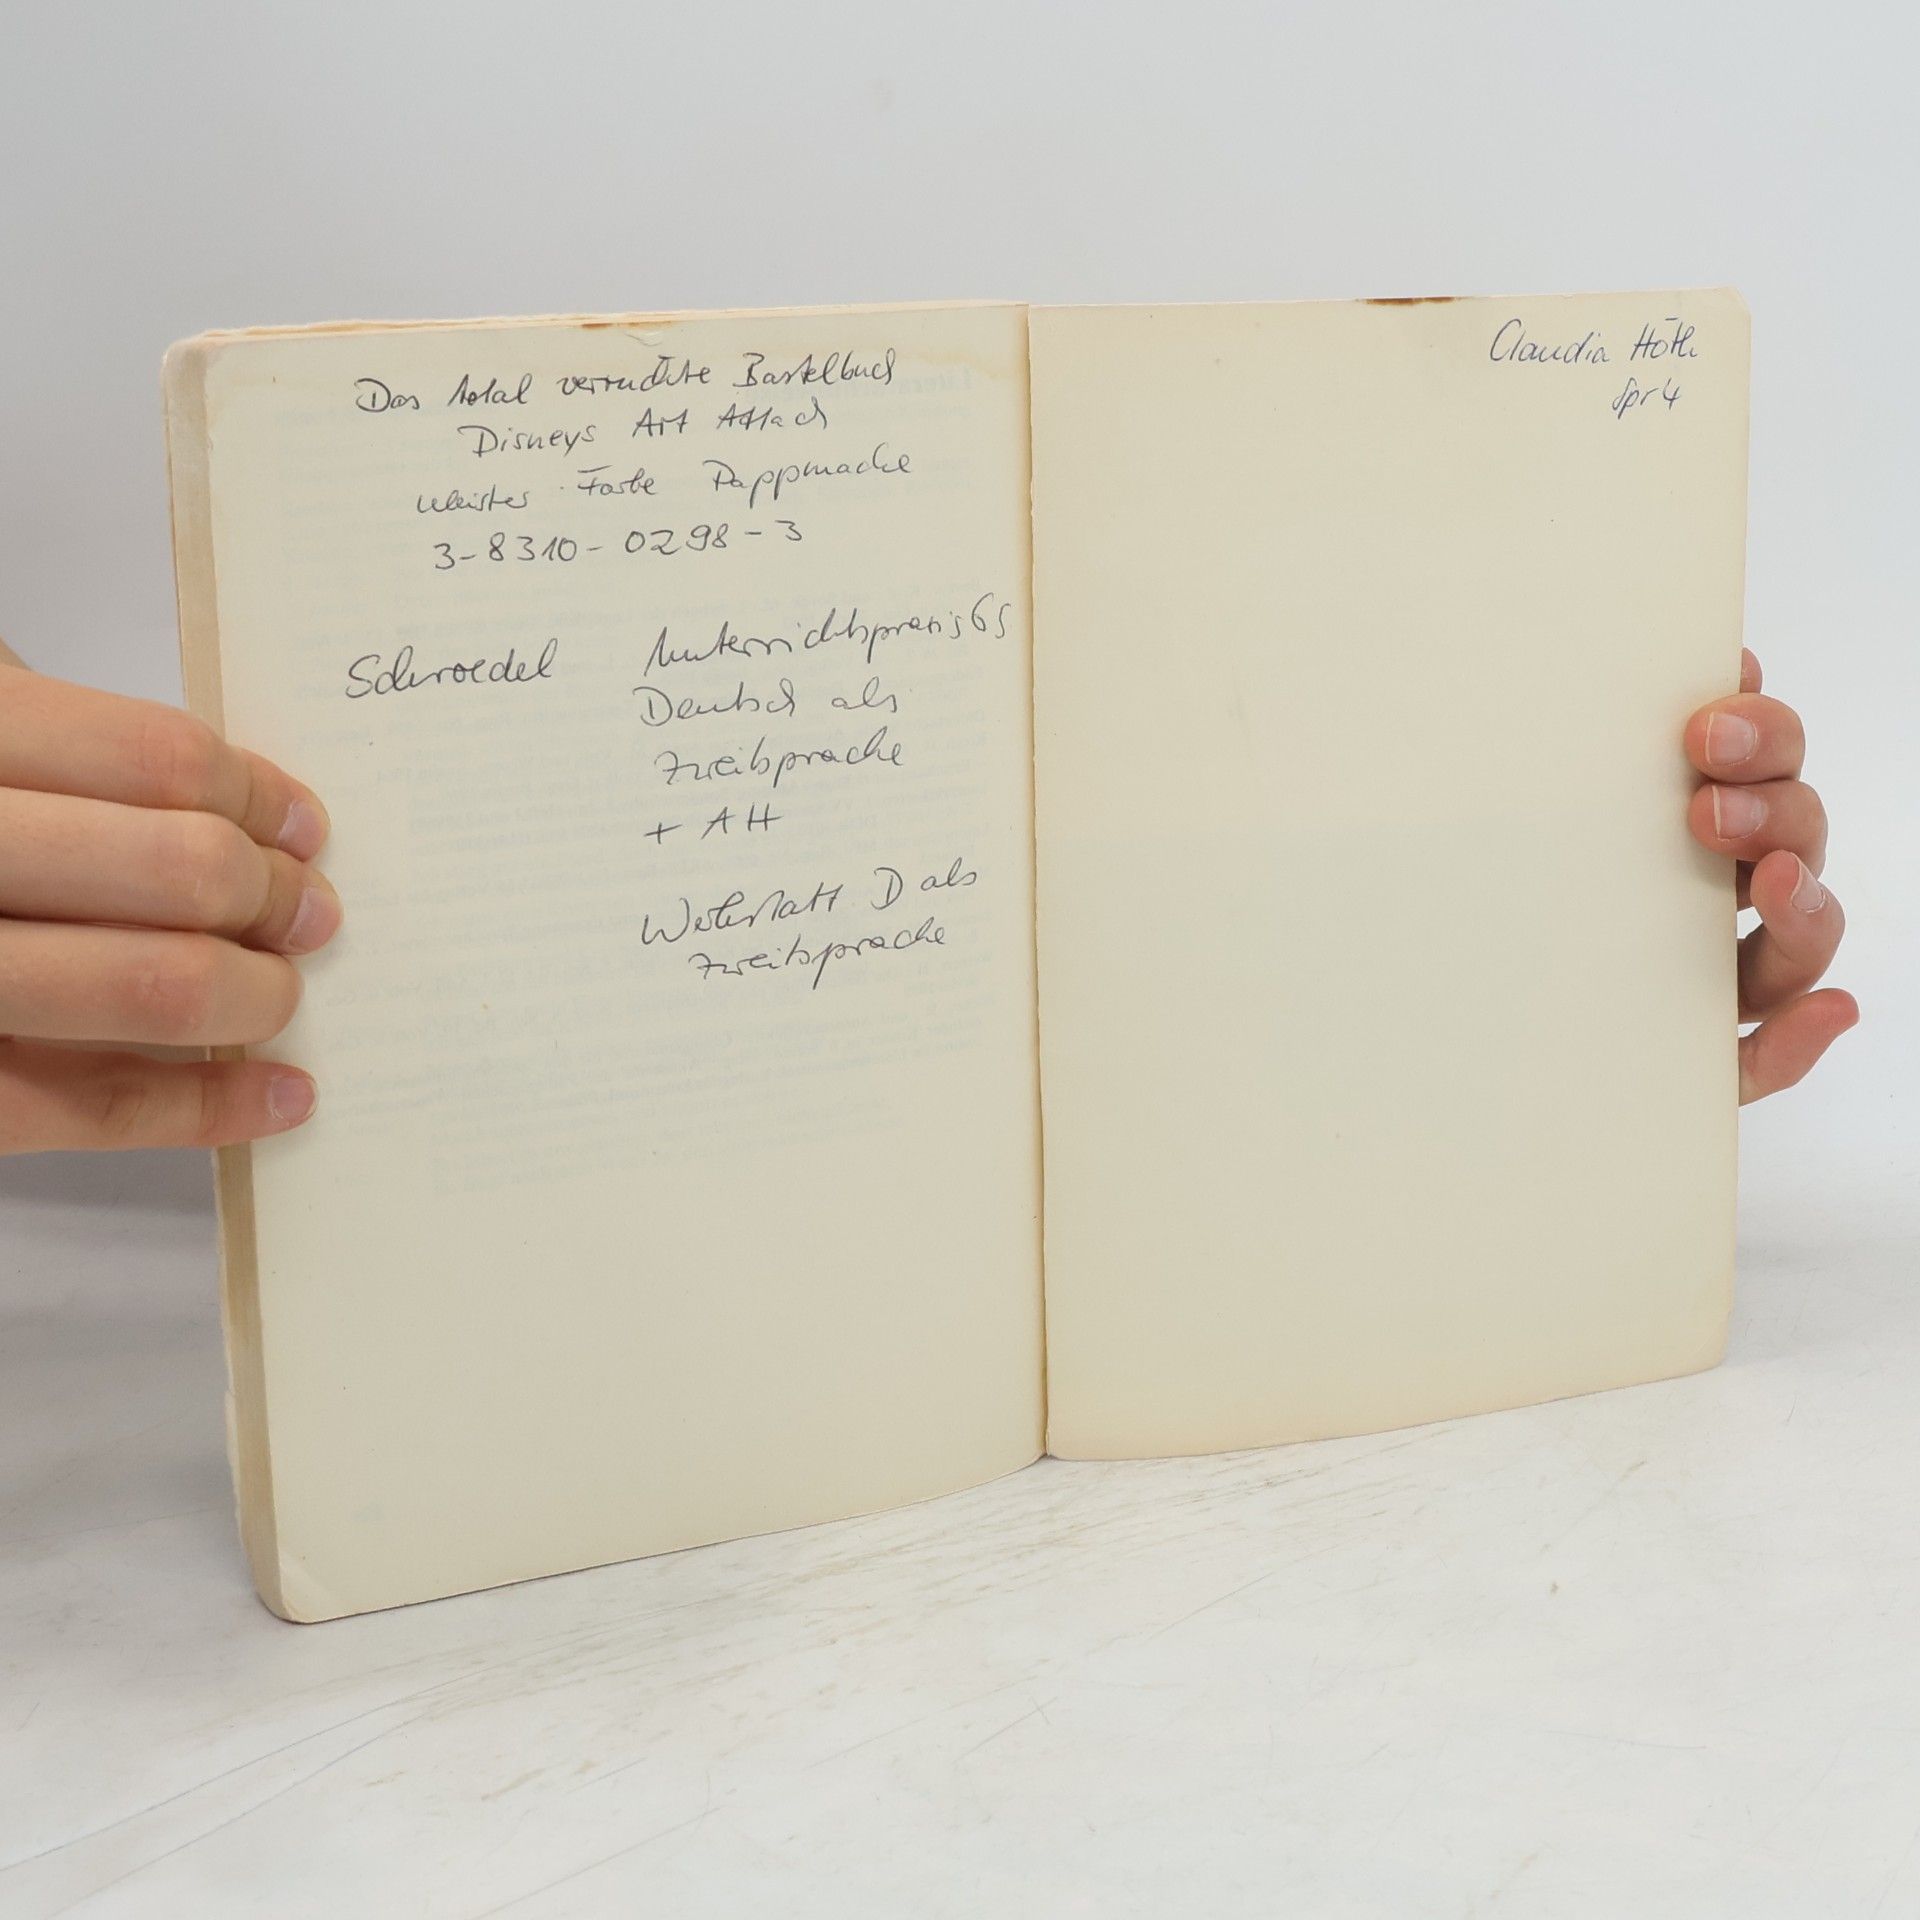 Das total verrückte Bastelbuch
Disneys Art Attack
Kleister Farbe Pappmache
3-8310-0298-3
Schroedel Unterrichtspraxis GS
Deutsch als
Zweitsprache
+ AH
Werkstatt D als
Zweitsprache
Claudia Höth
Spr 4